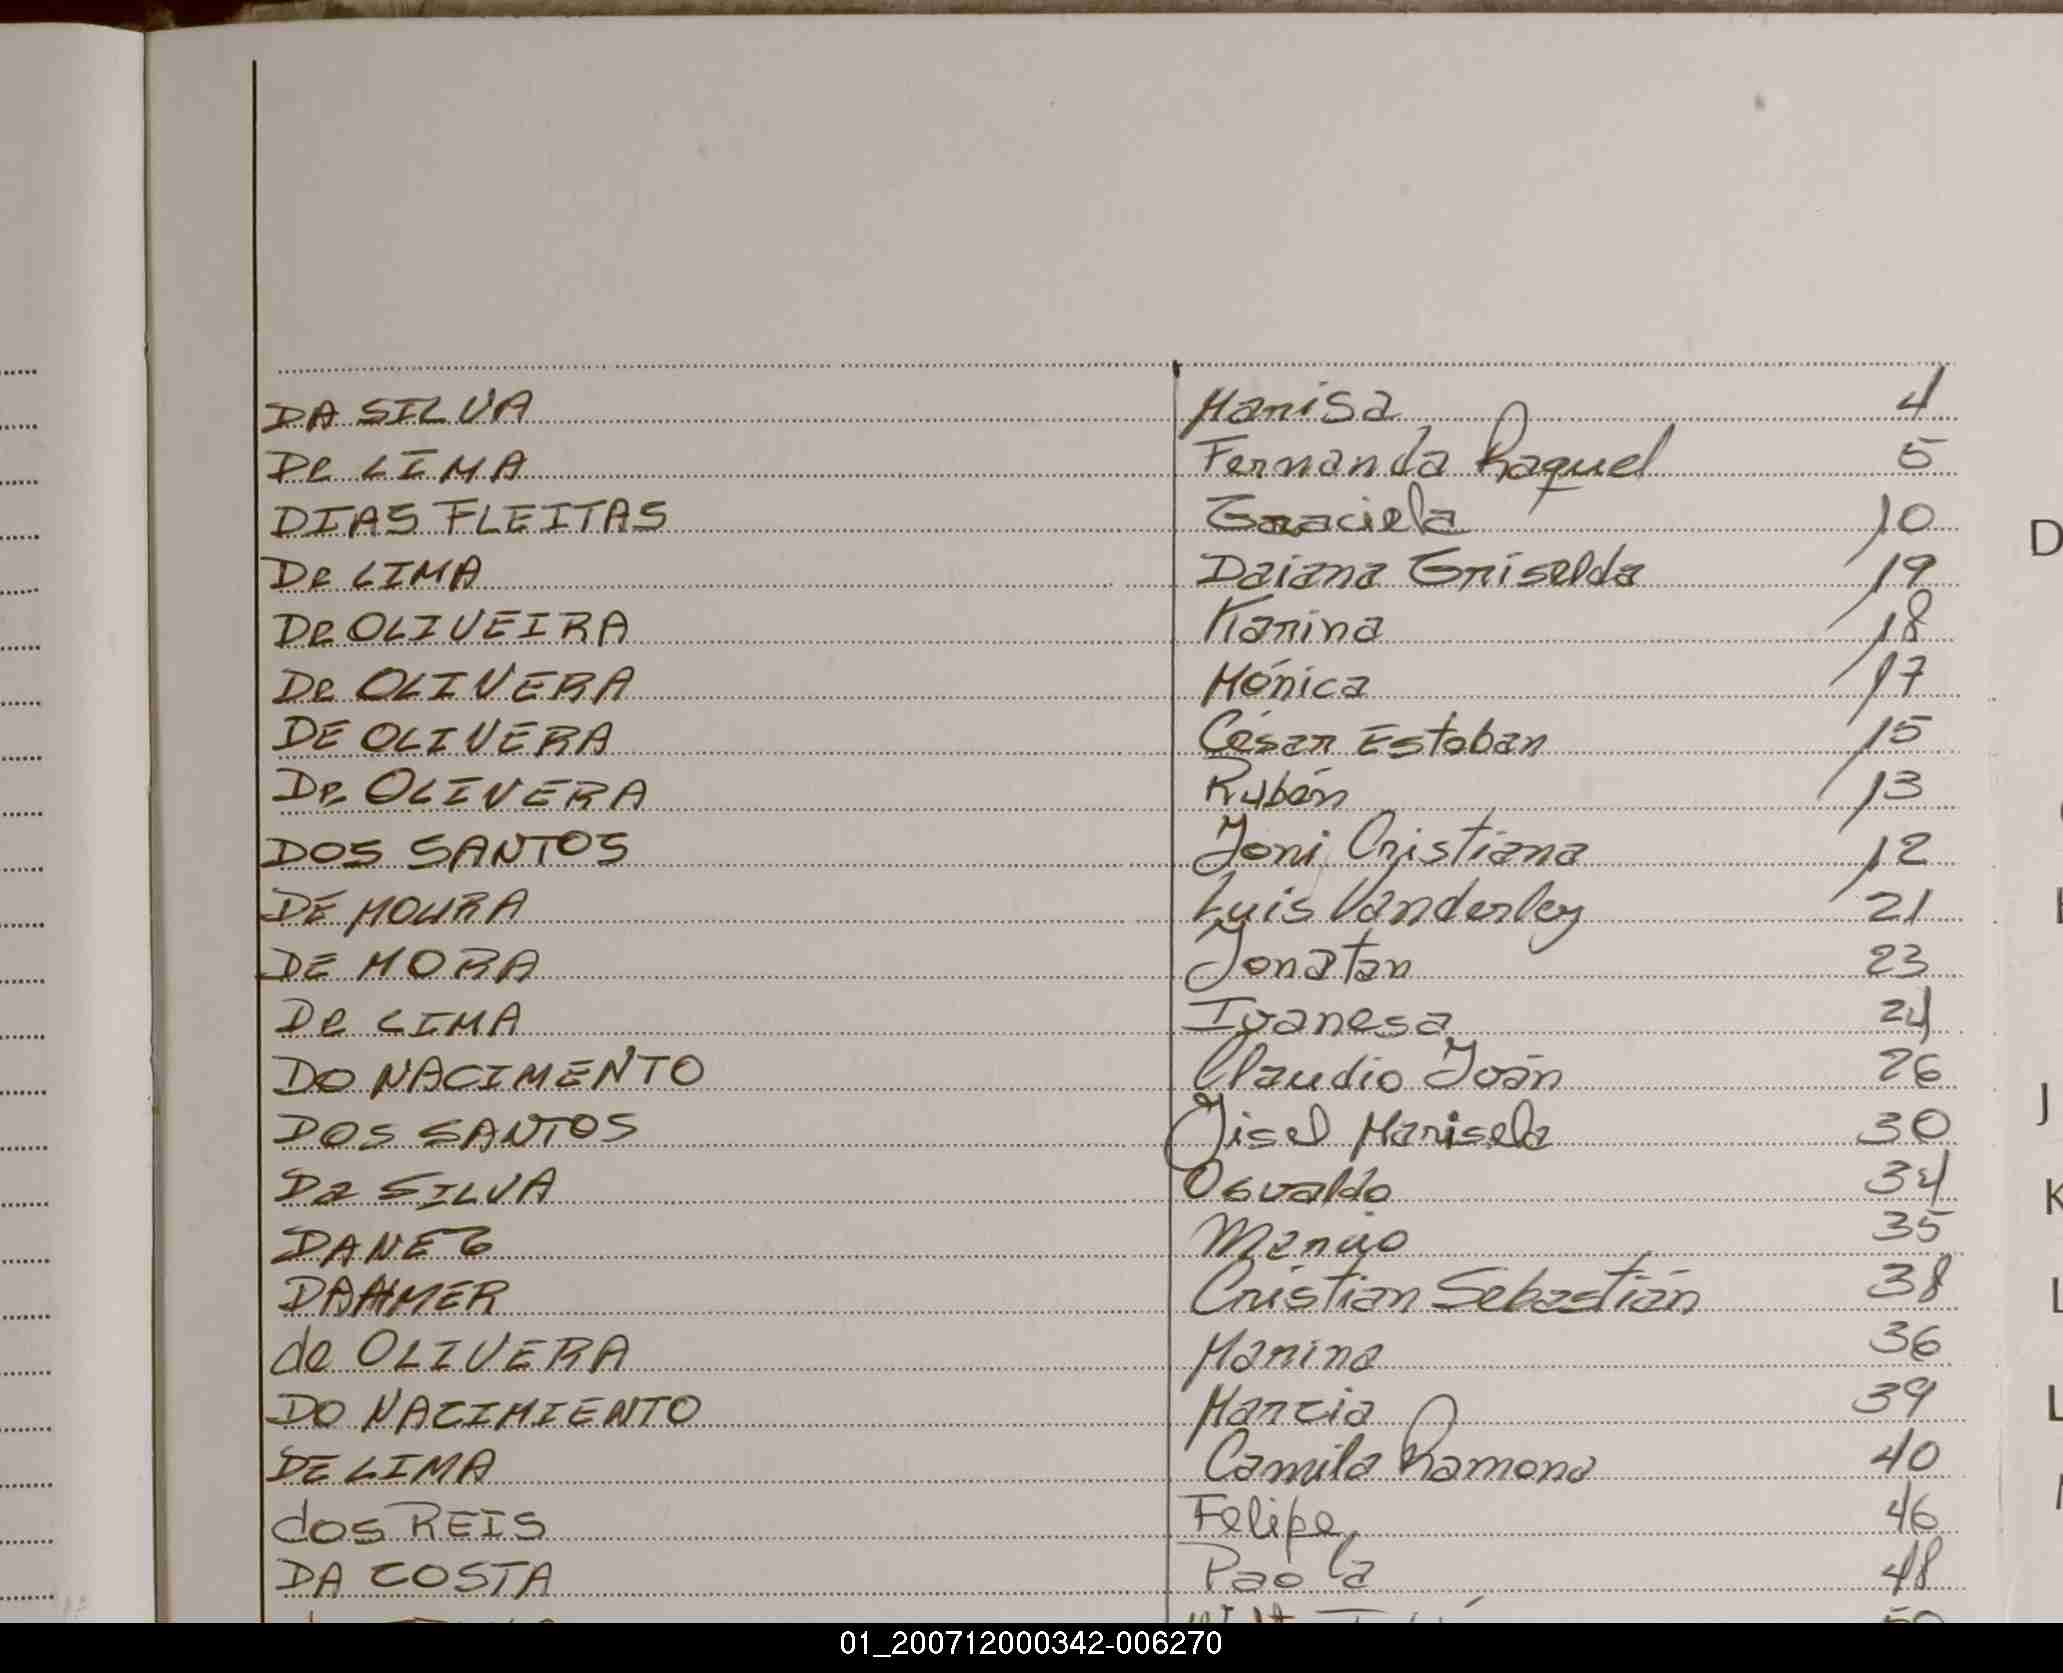 DA SILVA Marisa 4
De LIMA Fernanda Raquel 5
DIAS FLEITAS Graciela 10
De LIMA Daiana Griselda 19
De OLIVEIRA Karina 18
De OLIVERA Mónica 17
DE OLIVERA César Esteban 15
De OLIVERA Rubén 13
DOS SANTOS Joni Cristiana 12
DE MOURA Luis Vanderley 21
DE MORA Jonatan 23
De LIMA Ivanesa 24
DO NACIMENTO Claudio Joán 26
DOS SANTOS Jisel Marisela 30
Da SILVA Osvaldo 34
DANEZ 35
DAHMER Cristian Sebastián 38
de OLIVERA Marina 36
DO NACIMIENTO Marcia 39
DE LIMA Camila Ramona 40
dos REIS Felipe 46
DA COSTA Paola 48
D
J
K
L
L
01_200712000342-006270